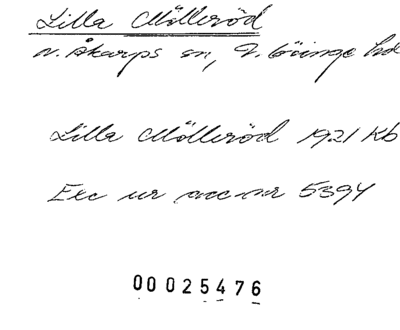 Lilla Mölleröd
N. Åkarps sn, V. Göinge hd
Lilla Mölleröd 1921 Kb
Exc ur acc nr 5394
00025476